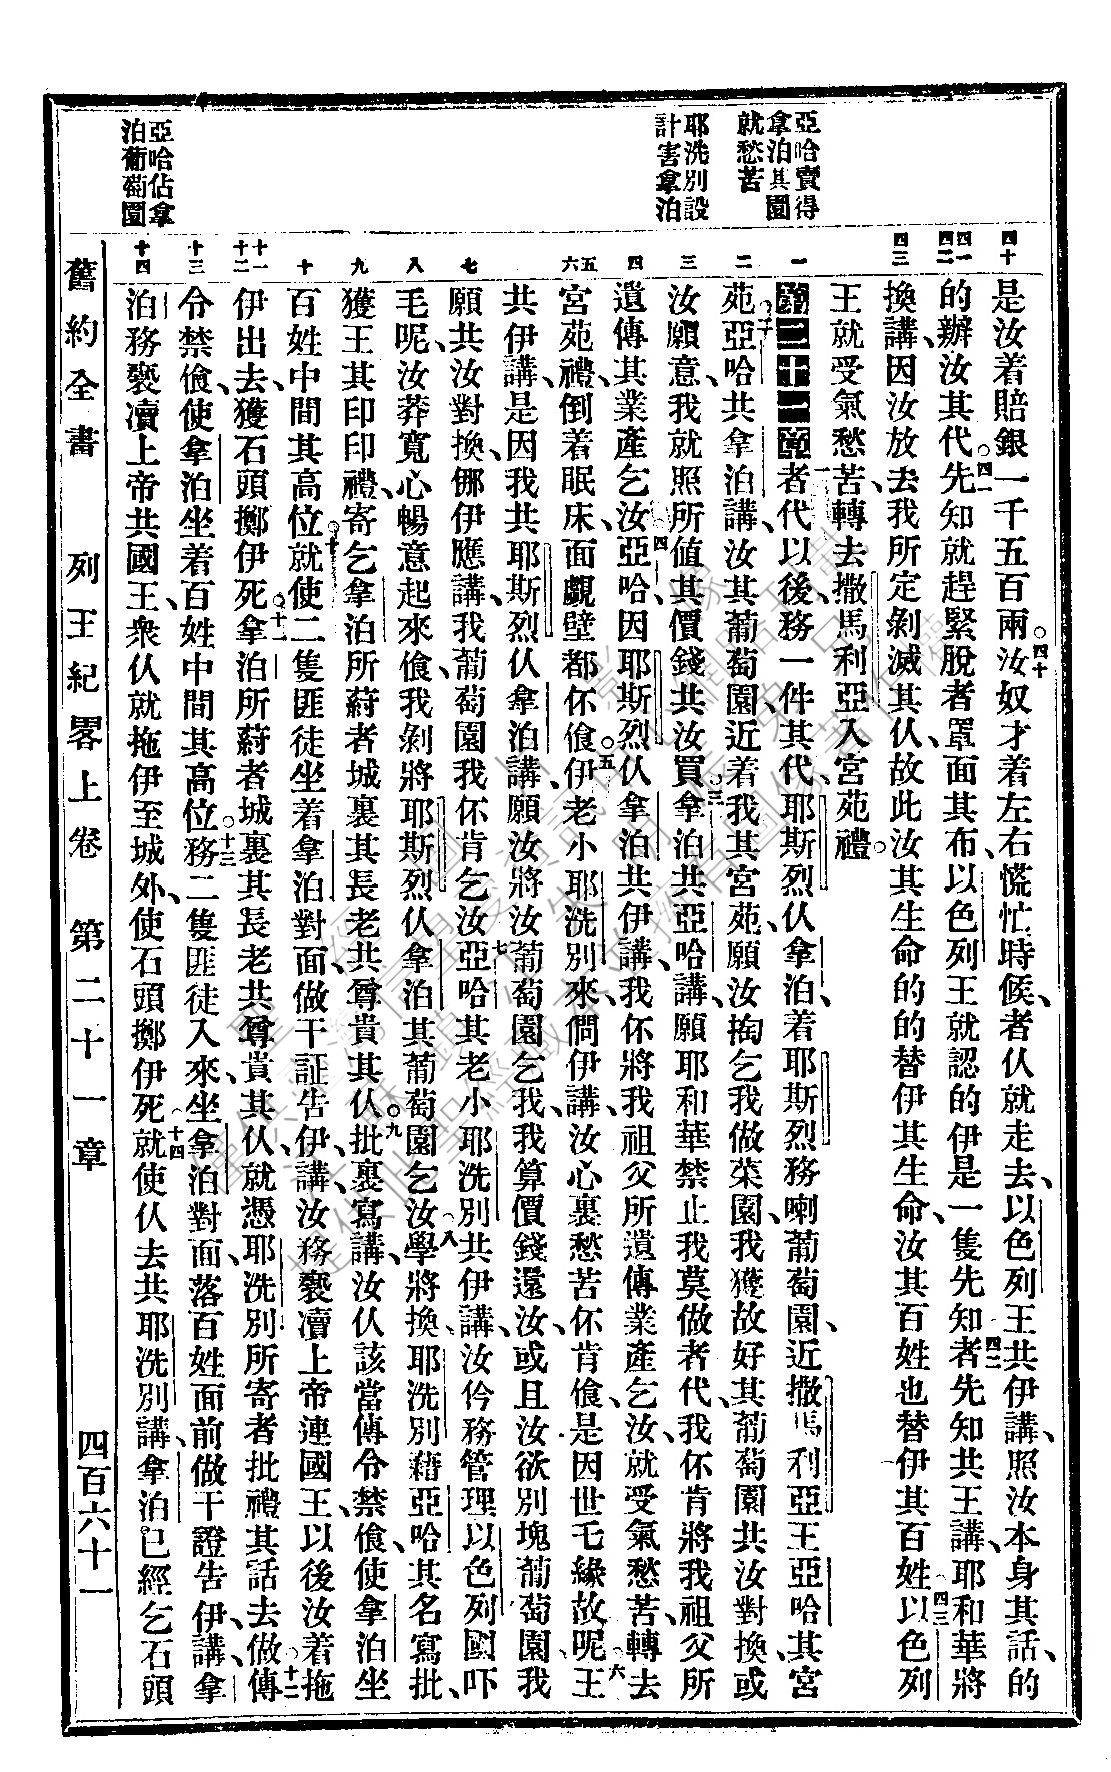 亞哈賣得
拿泊其園
就愁苦
耶洗別設
計害拿泊
亞哈佔拿
泊葡萄園
四十
四一
四二
四三
一
二
三
四
五
六
七
八
九
十
十一
十二
十三
十四
是汝着賠銀一千五百兩。四十汝奴才着左右慌忙時候、者仈就走去、以色列王共伊講、照汝本身其話、的
的辦汝其代。四一先知就趕緊脫者罩面其布、以色列王就認的伊是一隻先知。四二者先知共王講、耶和華將
換講、因汝放去我所定剝滅其仈、故此汝其生命的的替伊其生命、汝其百姓也替伊其百姓。四三以色列
王就受氣愁苦、轉去撒馬利亞入宮苑禮。
第二十一章一者代以後、務一件其代、耶斯烈仈拿泊、着耶斯烈務喇葡萄園、近撒馬利亞王亞哈其宮
苑。二亞哈共拿泊講、汝其葡萄園近着我其宮苑、願汝掏乞我做菜園、我獲故好其葡萄園共汝對換、或
汝願意、我就照所值其價錢共汝買。三拿泊共亞哈講、願耶和華禁止我莫做者代、我伓肯將我祖父所
遺傳其業產乞汝。四亞哈因耶斯烈仈拿泊共伊講、我伓將我祖父所遺傳業產乞汝、就受氣愁苦、轉去
宮苑禮、倒着眠床、面覷壁都伓飡。五伊老小耶洗別來、僩伊講、汝心裏愁苦伓肯飡、是因世乇緣故呢。六王
共伊講、是因我共耶斯烈仈拿泊講、願汝將汝葡萄園乞我、我算價錢還汝、或且汝欲別塊葡萄園、我
願共汝對換、㑚伊應講、我葡萄園我伓肯乞汝。七亞哈其老小耶洗別共伊講、汝伶務管理以色列國吓
毛呢、汝莽寬心暢意起來飡、我剝將耶斯烈仈拿泊其葡萄園乞汝。八學將換、耶洗別藉亞哈其名寫批、
獲王其印印禮、寄乞拿泊所蔚者城裏其長老共尊貴其仈。九批裏寫講、汝仈該當傳令禁飡、使拿泊坐
百姓中間其高位。十就使二隻匪徒坐着拿泊對面、做干証告伊講、汝務褻瀆上帝連國王、以後汝着拖
伊出去、獲石頭擲伊死。十一拿泊所蔚者城裏其長老共尊貴其仈、就憑耶洗別所寄者批禮其話去做。十二傳
令禁飡、使拿泊坐着百姓中間其高位。十三務二隻匪徒入來、坐拿泊對面、落百姓面前做干證告伊講、拿
泊務褻瀆上帝共國王、衆仈就拖伊至城外、使石頭擲伊死。十四就使仈去共耶洗別講、拿泊已經乞石頭
舊約全書　列王紀畧上卷　第二十一章　四百六十一